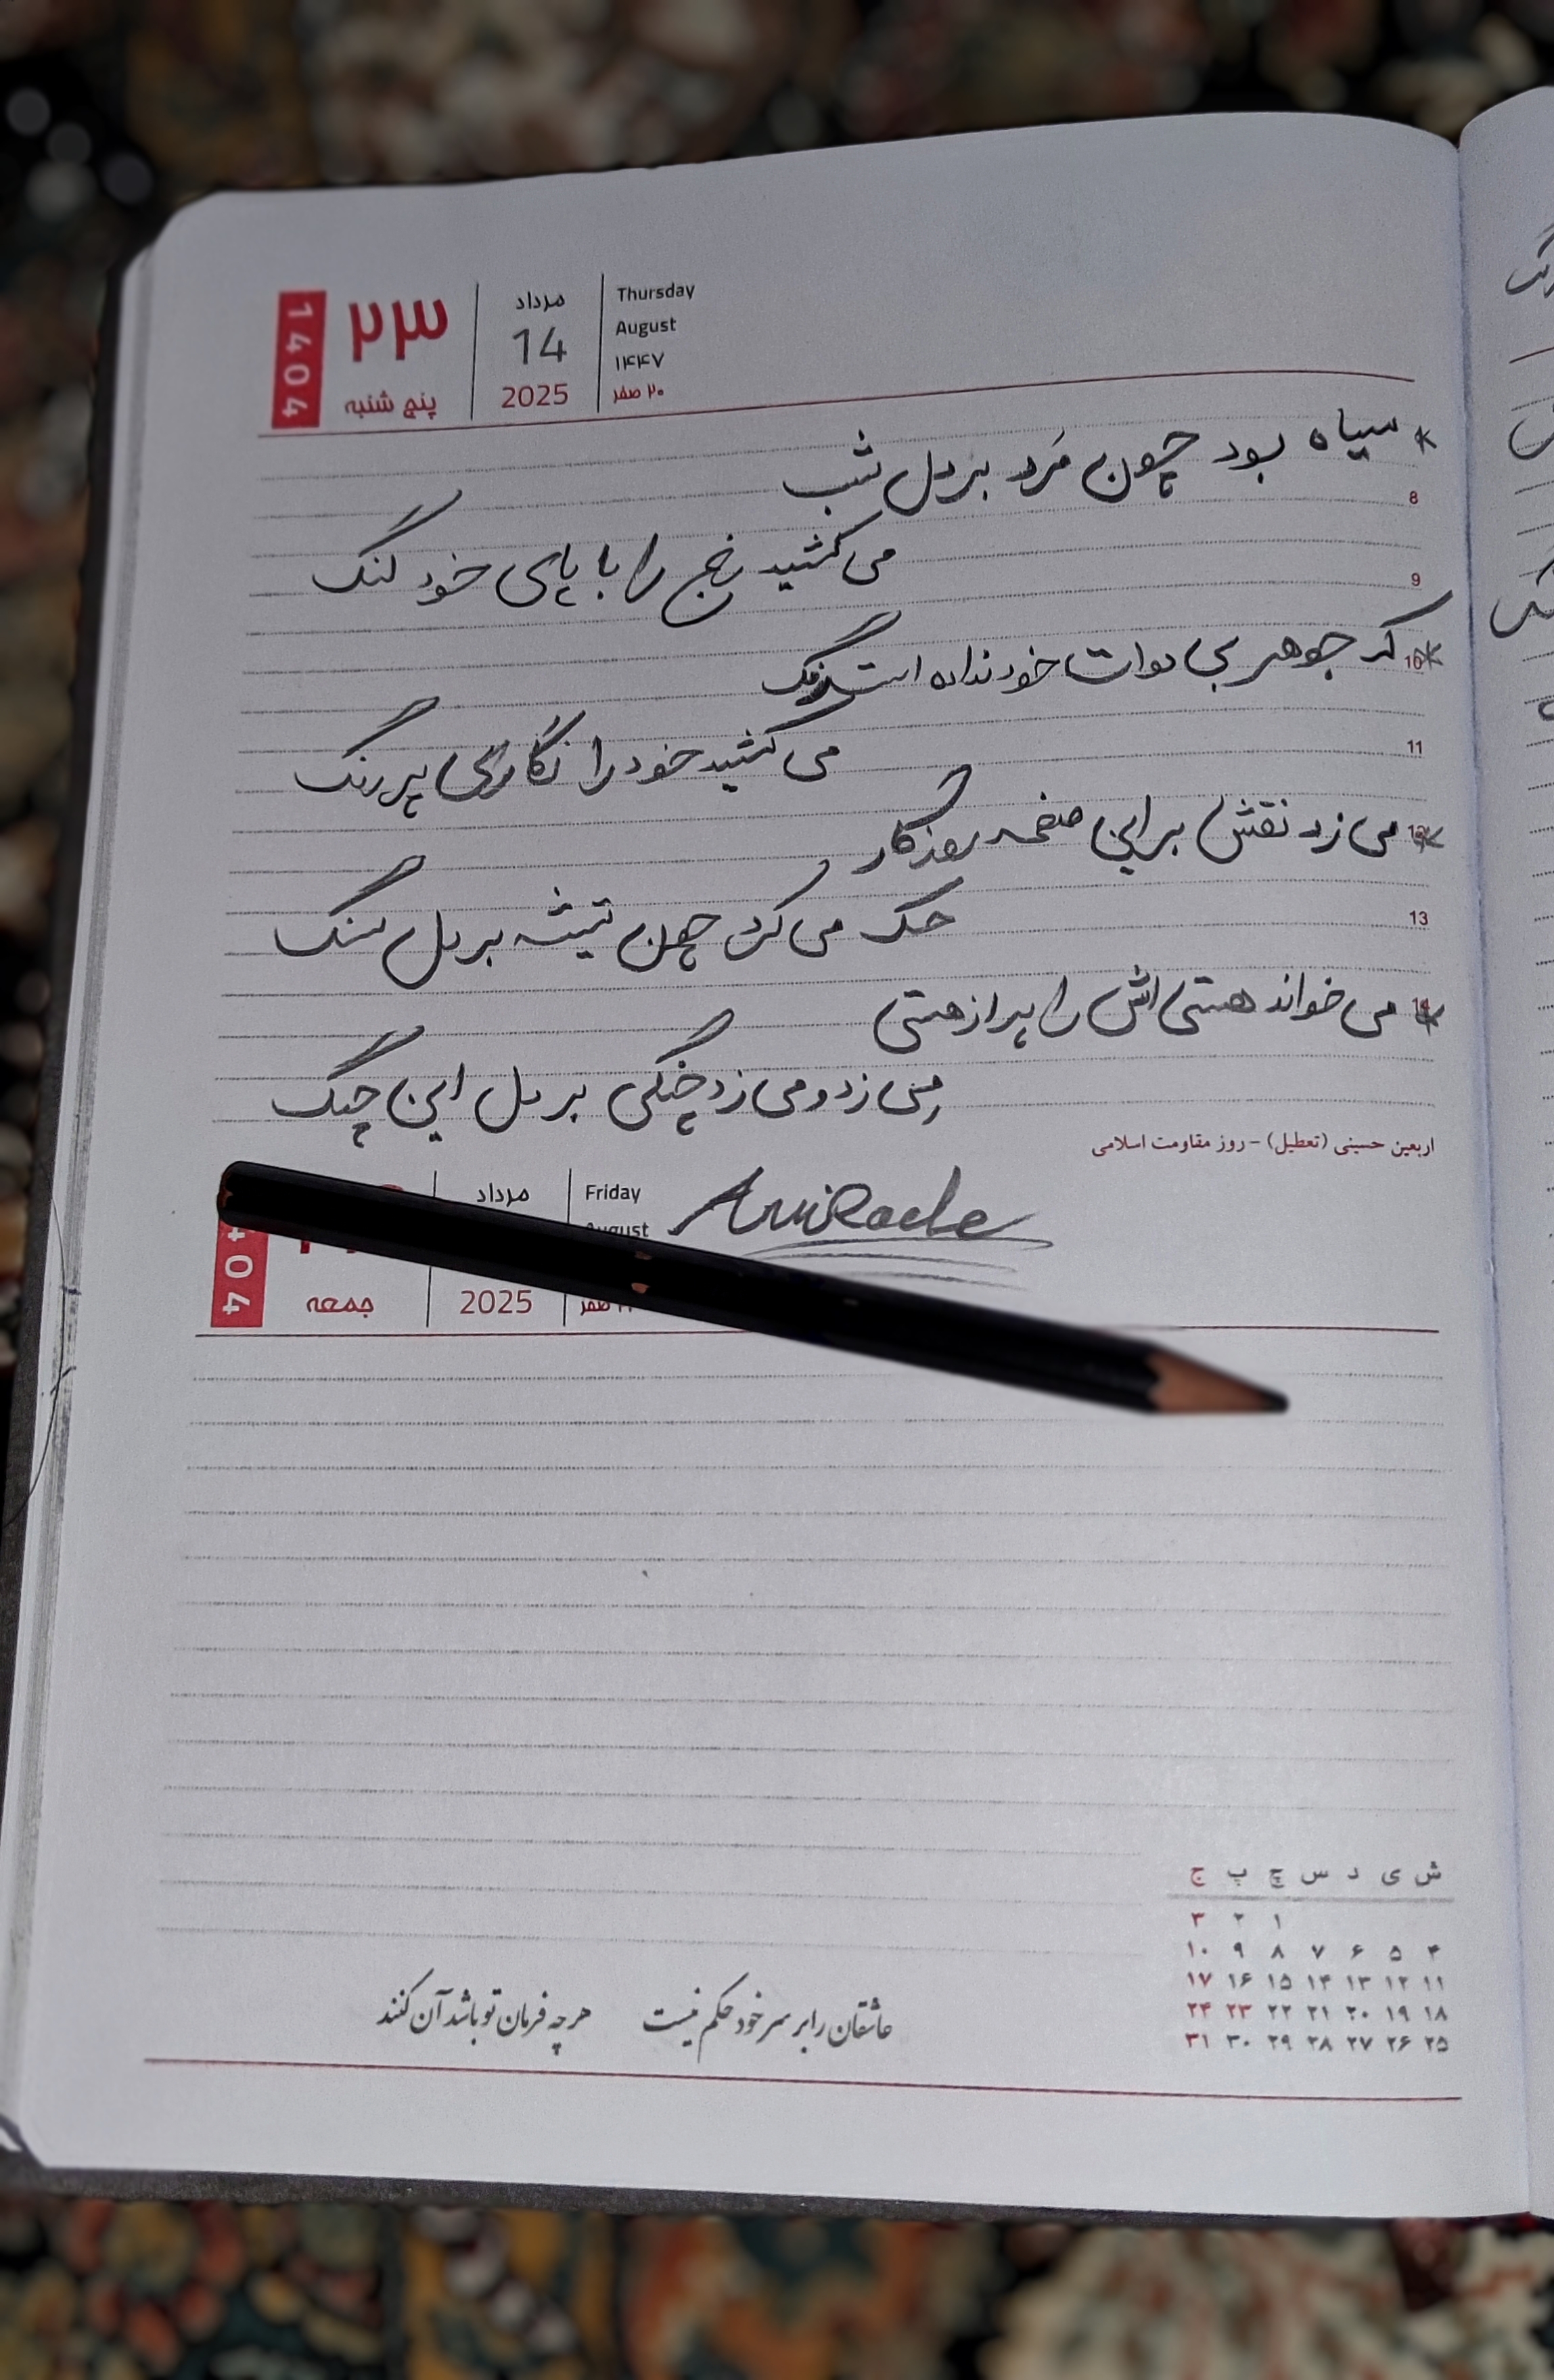 1404
۲۳
پنج شنبه
مرداد
14
2025
Thursday
August
۱۴۴۷
۲۰ صفر
* سیاه بود چون مَرد بر دل شب
8
می کشید رنج را با پای خود لنگ
9
* کز جوهر بی دوات خود نداده است رنگ
10
می کشید خود را نگاری پر رنگ
11
* می زد نقش بر این صفحه روزگار
حک می کرد چون تیشه بر دل سنگ
13
* می خواند هستی اش را پر از هستی
می زد و می زد چنگی بر دل این چنگ
اربعین حسینی (تعطیل) - روز مقاومت اسلامی
جمعه
مرداد
2025
Friday
August
صفر
ش ی د س چ پ ج
۱ ۲ ۳
۴ ۵ ۶ ۷ ۸ ۹ ۱۰
۱۱ ۱۲ ۱۳ ۱۴ ۱۵ ۱۶ ۱۷
۱۸ ۱۹ ۲۰ ۲۱ ۲۲ ۲۳ ۲۴
۲۵ ۲۶ ۲۷ ۲۸ ۲۹ ۳۰ ۳۱
عاشقان را بر سر خود حکم نیست هر چه فرمان تو باشد آن کنند